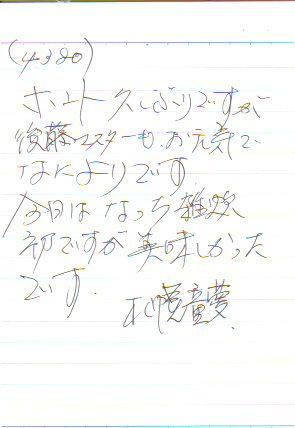 (4320)
ホント久しぶりですが
後藤マスターも、お元気で
なによりです
今日は なっち雑炊
初ですが美味しかった
です.